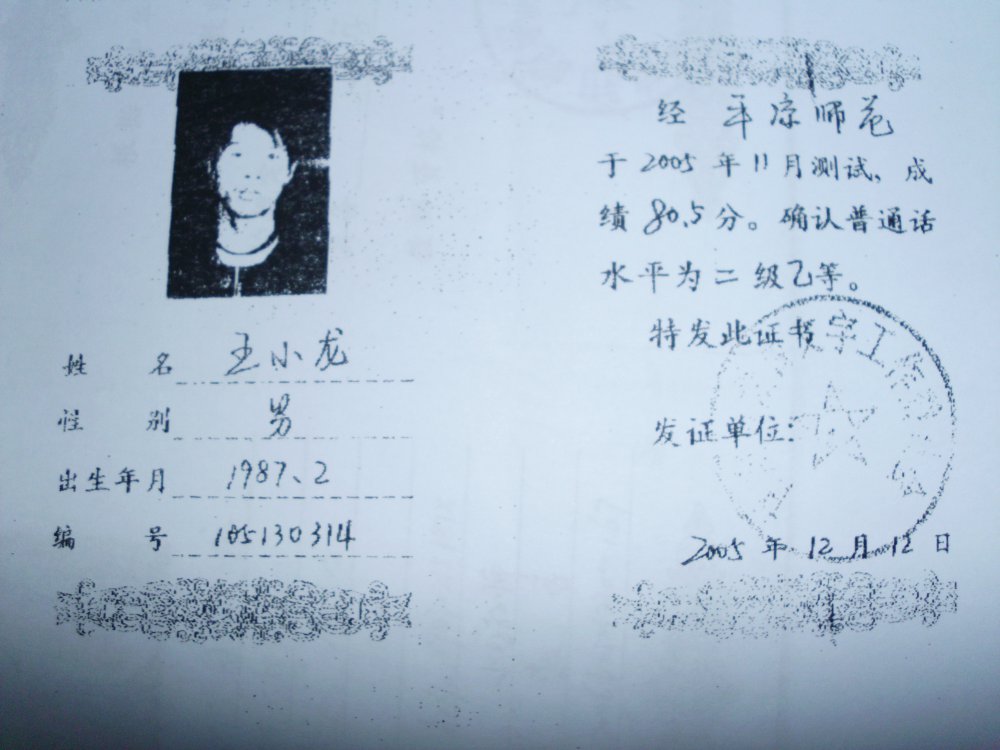 姓 名 王小龙
性 别 男
出生年月 1987、2
编 号 105130314
经 平凉师范
于 2005 年 11 月测试，成
绩 80.5 分。确认普通话
水平为二级乙等。
特发此证书
发证单位：
字工作
2005 年 12 月 12 日